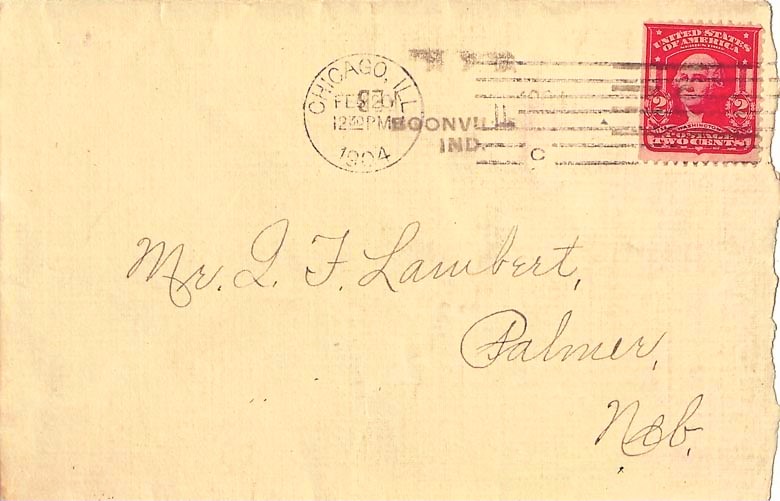 UNITED STATES
OF AMERICA
CHICAGO, ILL
FEB 20
12 30 PM
1904
BOONVILLE
IND.
C
2 2
WASHINGTON
POSTAGE
TWO CENTS
Mr. I. F. Lambert,
Palmer,
Neb.